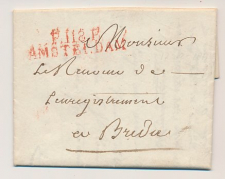 P.118.P.
AMSTERDAM
a Monsieur
Le Receveur de
L'enregistrement
a Breda